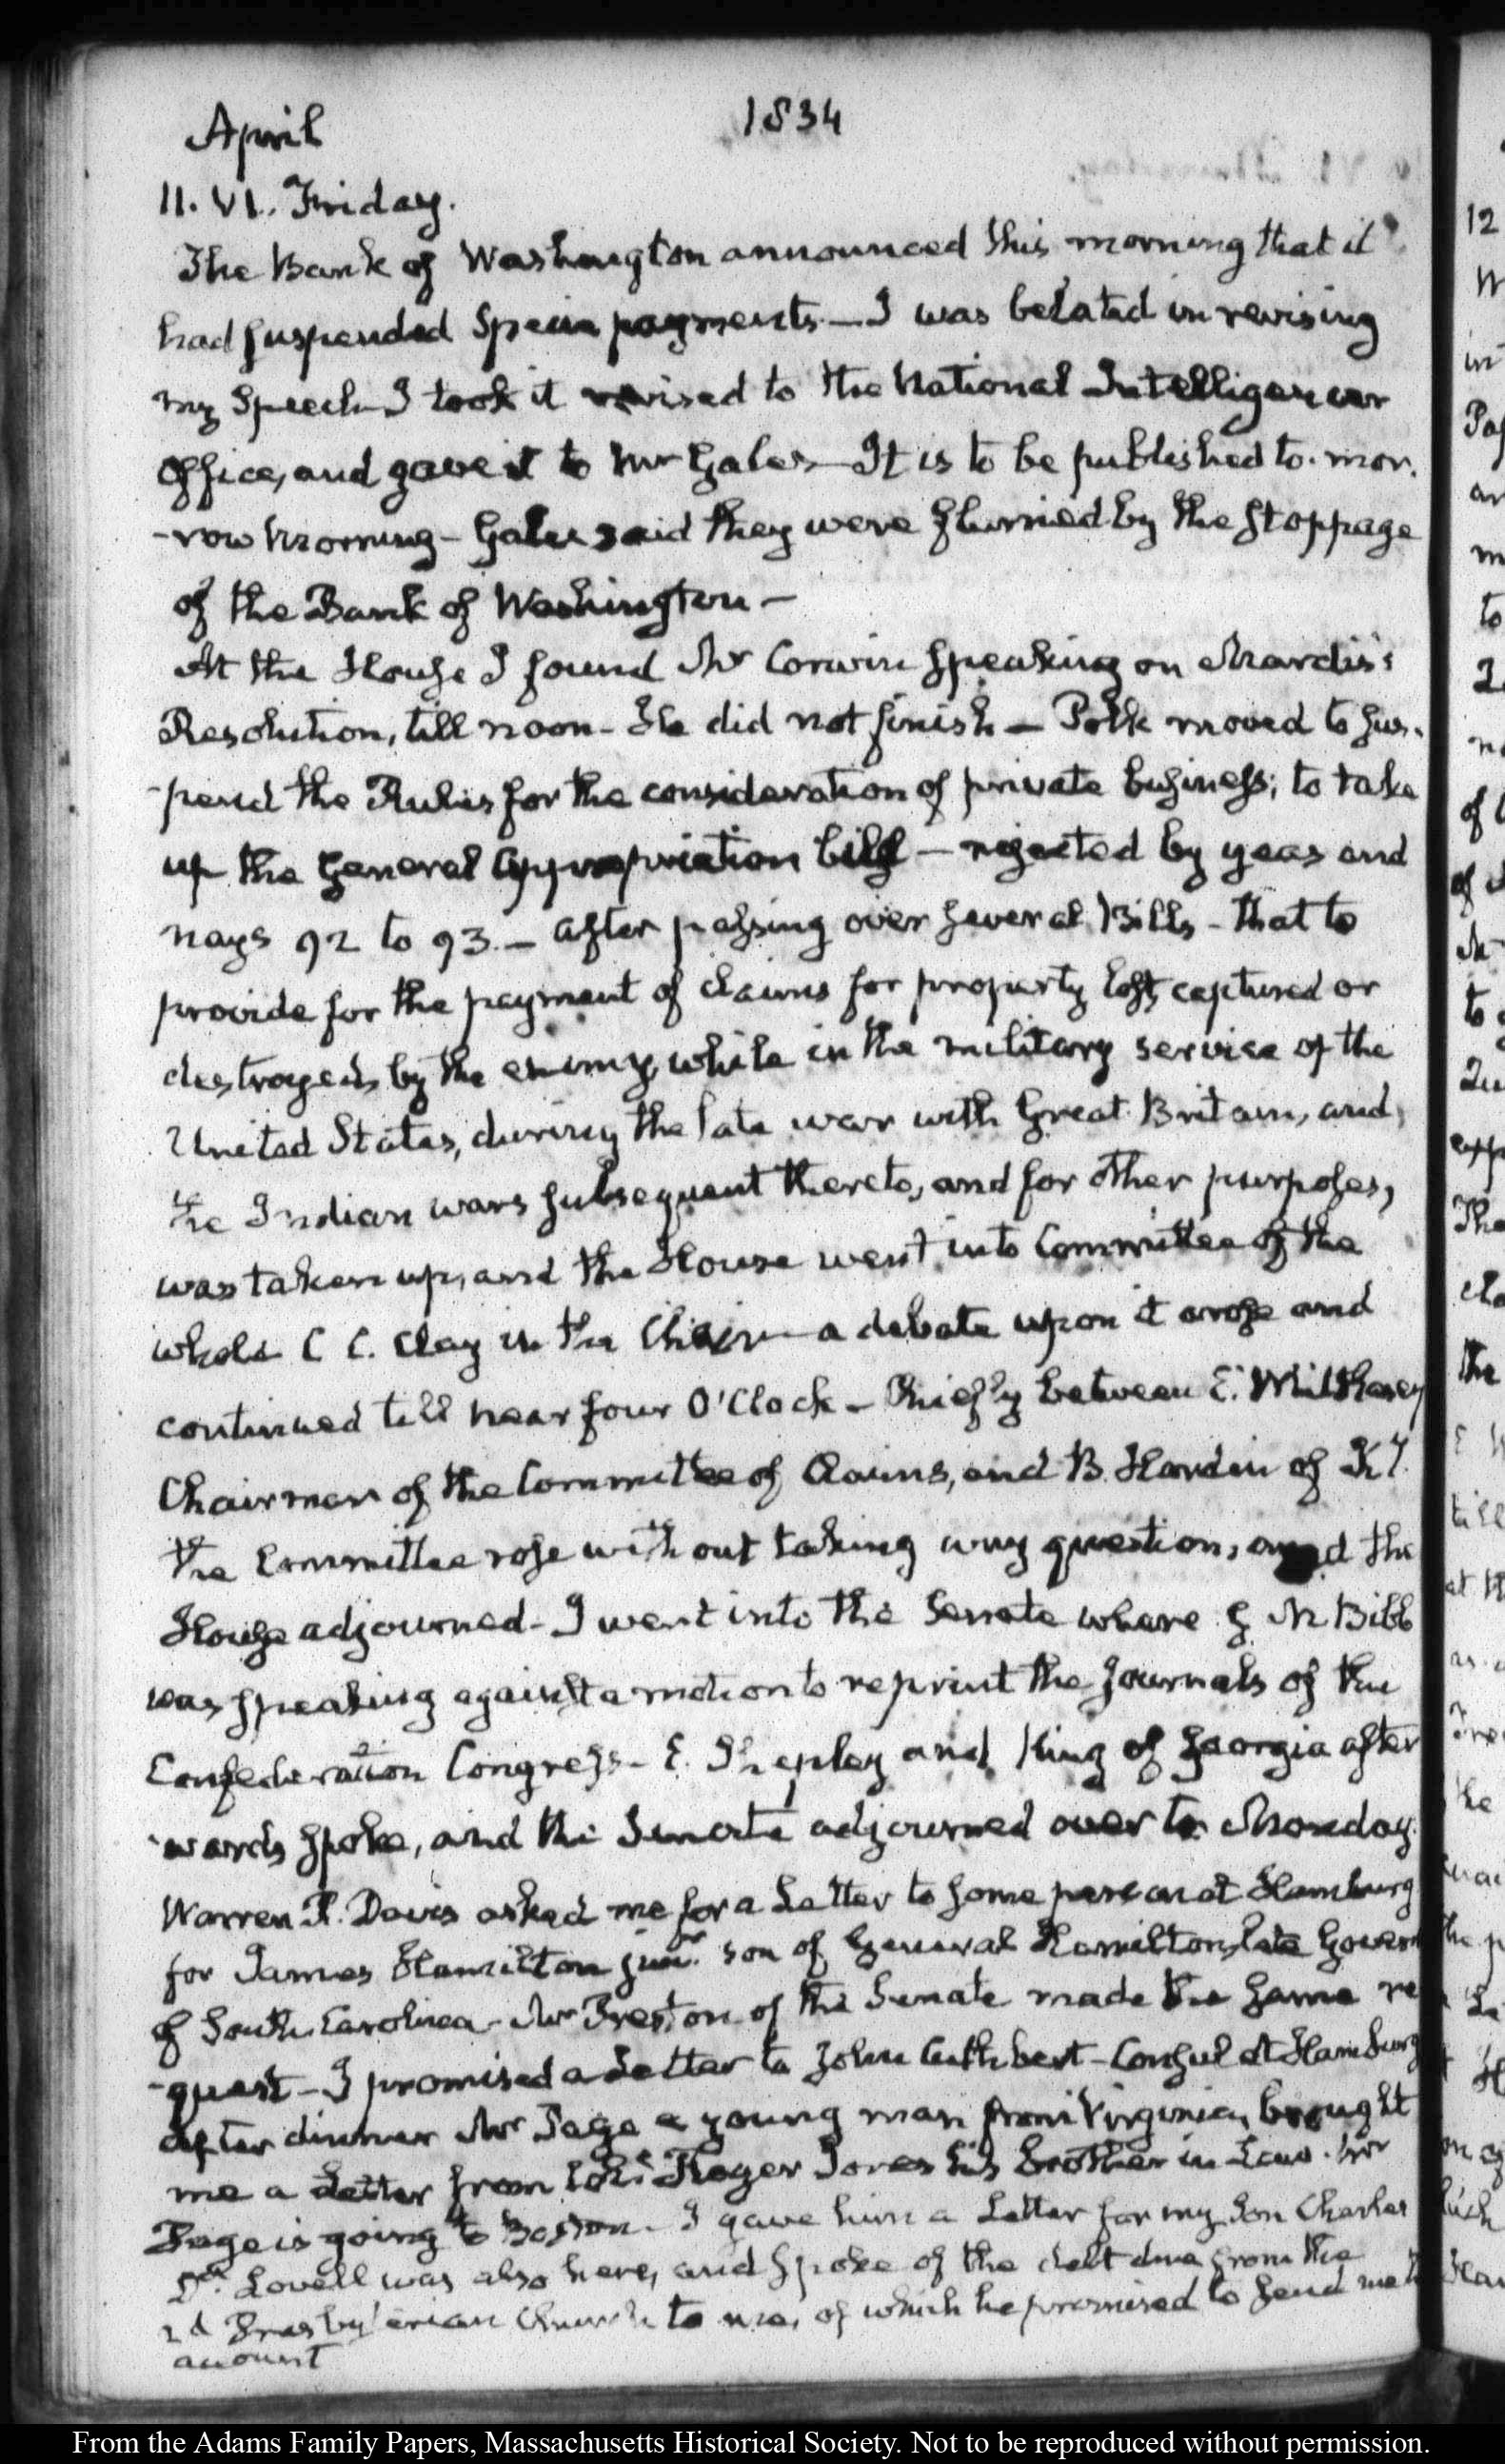 April 1834
11. VI. Friday.
The Bank of Washington announced this morning that it
had suspended Specie payments — I was belated in revising
my Speech — I took it revised to the National Intelligencer
Office, and gave it to Mr Gales — It is to be published to-mor-
-row morning — Gales said they were flurried by the stoppage
of the Bank of Washington —
At the House I found Mr Corwin speaking on Mardis's
Resolution, till noon — He did not finish — Polk moved to sus-
-pend the Rules for the consideration of private business; to take
up the General Appropriation bill — rejected by yeas and
nays 92 to 93. — After passing over several Bills — that to
provide for the payment of claims for property lost, captured or
destroyed by the enemy, while in the military service of the
United States, during the late war with Great Britain, and
the Indian wars subsequent thereto, and for other purposes,
was taken up, and the House went into Committee of the
whole C C. Clay in the Chair — a debate upon it arose and
continued till near four O'Clock — Chiefly between E. Whittlesey
Chairman of the Committee of Claims, and B. Hardin of Ky.
the Committee rose without taking any question, and the
House adjourned — I went into the Senate where G M Bibb
was speaking against a motion to reprint the Journals of the
Confederation Congress — E. Shepley and King of Georgia after
wards spoke, and the Senate adjourned over to Monday.
Warren R. Davis asked me for a Letter to some person at Hamburg
for James Hamilton junr. son of General Hamilton, late Govern
of South Carolina — Mr Preston of the Senate made the same re
-quest — I promised a Letter to John Cuthbert — Consul at Hamburg
After dinner Mr Page a young man from Virginia, brought
me a Letter from Coll. Roger Jones his brother in Law. Mr
Page is going to Boston — I gave him a Letter for my Son Charles
Dr. Lovell was also here, and spoke of the debt due from the
2d Presbyterian Church to me, of which he promised to send me
account
12
From the Adams Family Papers, Massachusetts Historical Society. Not to be reproduced without permission.